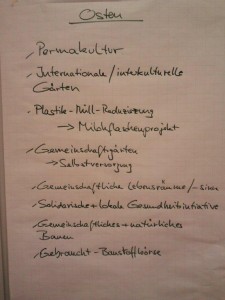 Osten
Permakultur
Internationale/interkulturelle
Gärten
Plastik-Müll-Reduzierung
→ Milchflaschenprojekt
Gemeinschaftsgärten
→ Selbstversorgung
Gemeinschaftliche Lebensräume/
Solidarische + lokale Gesundheitsinitiative
Gemeinschaftliches + natürliches
Bauen
Gebraucht-Baustoffbörse